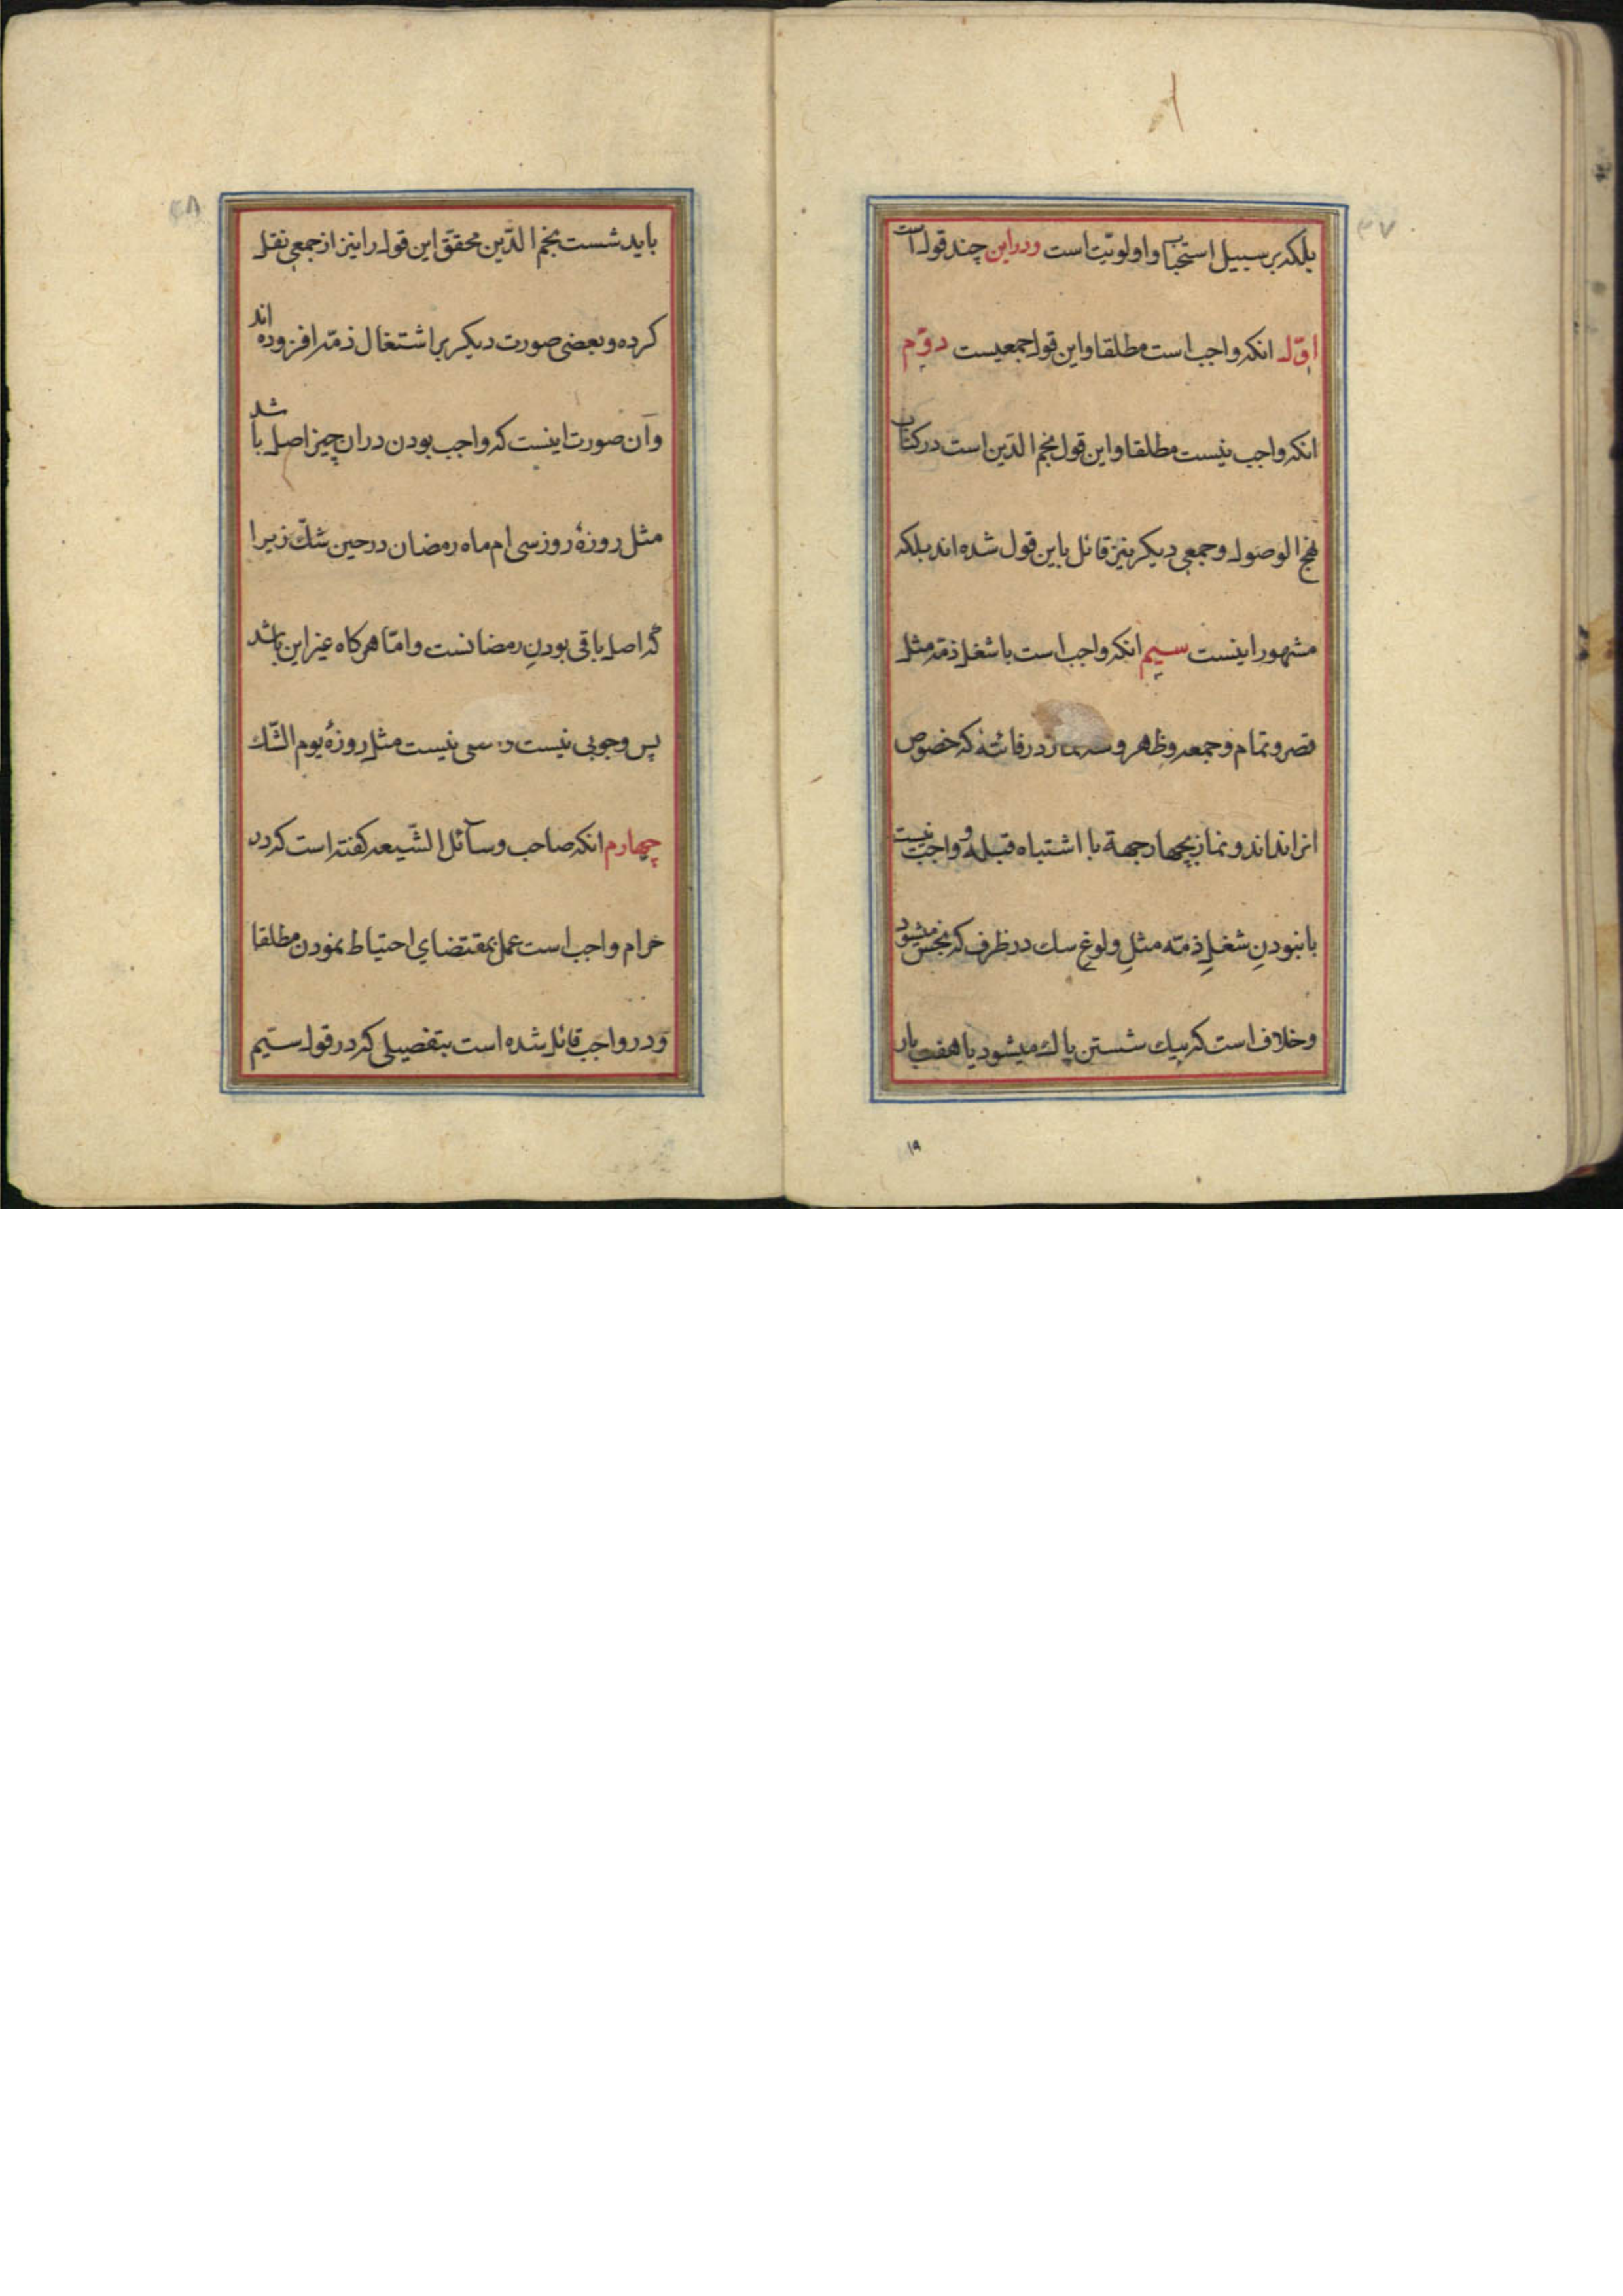 ۳۷
بلکه بر سبیل استحباب واولویّت است ودراین چند قول است
اوّل انکه واجب است مطلقا واین قول جمعیست دوّم
انکه واجب نیست مطلقا واین قول نجم الدّین است در کتاب
نهج الوصول وجمعی دیکر نیز قائل باین قول شده اند بلکه
مشهور اینست سیم انکه واجب است با شغل ذمّه مثل
قصر وتمام وجمعه وظهر و در فائتهٔ که خصوص
انرا نداند و نماز بچهار جهة با اشتباه قبله و واجب نیست
با نبودنِ شغلِ ذمّه مثلِ ولوغ سك در ظرف که نجس میشود
وخلاف است که بیك شستن پاك میشود یا هفت بار
۱۹
۳۸
باید شست نجم الدّین محقّق این قول را نیز از جمعی نقل
کرده وبعضی صورت دیکر بر اشتغال ذمّه افزوده اند
وآن صورت اینست که واجب بودن دران چیز اصل باشد
مثل روزهٔ روز سی ام ماه رمضان در حین شكّ زیرا
که اصل باقی بودنِ رمضانست وامّا هرکاه غیر این باشد
پس وجوبی نیست نیست مثل روزهٔ یوم الشّك
چهارم انکه صاحب وسآئل الشّیعه کفته است که در
حرام واجب است عمل بمقتضاي احتیاط نمودن مطلقا
ودر واجب قائل شده است بتفصیلی که در قول سیّم